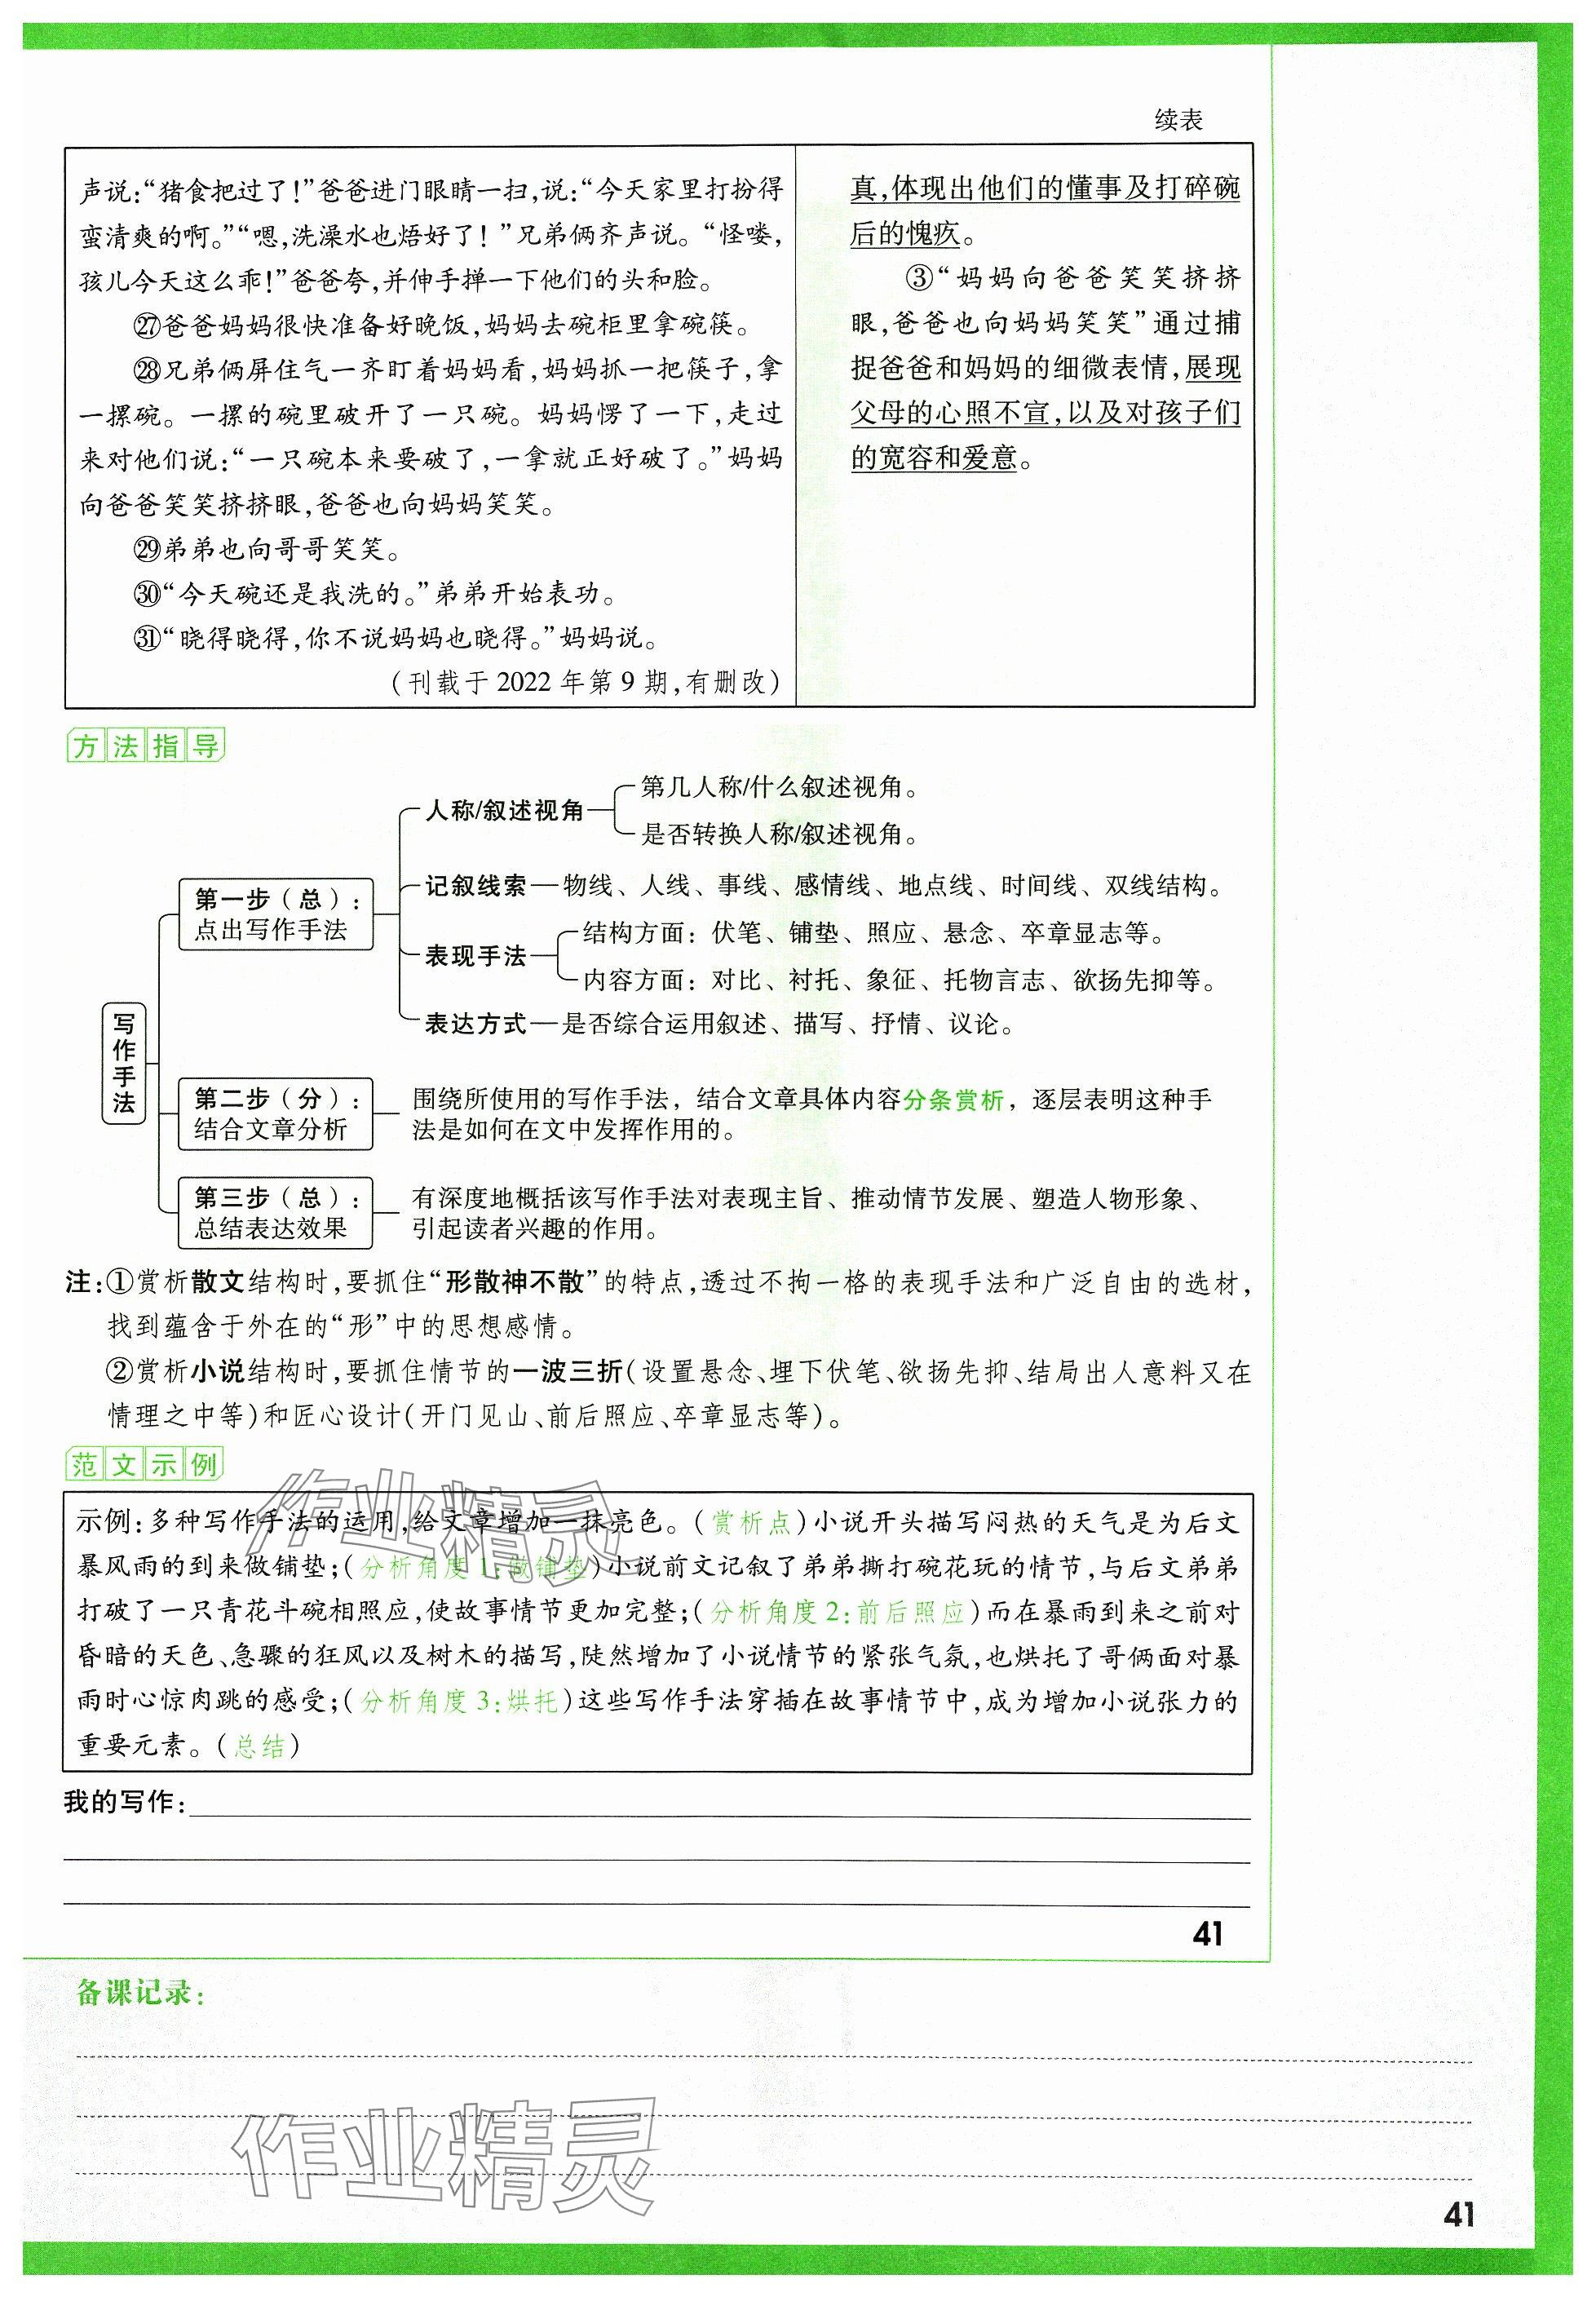 续表
声说：“猪食把过了！”爸爸进门眼睛一扫，说：“今天家里打扮得
蛮清爽的啊。”“嗯，洗澡水也焐好了！”兄弟俩齐声说。“怪喽，
孩儿今天这么乖！”爸爸夸，并伸手掸一下他们的头和脸。
㉗爸爸妈妈很快准备好晚饭，妈妈去碗柜里拿碗筷。
㉘兄弟俩屏住气一齐盯着妈妈看，妈妈抓一把筷子，拿
一摞碗。一摞的碗里破开了一只碗。妈妈愣了一下，走过
来对他们说：“一只碗本来要破了，一拿就正好破了。”妈妈
向爸爸笑笑挤挤眼，爸爸也向妈妈笑笑。
㉙弟弟也向哥哥笑笑。
㉚“今天碗还是我洗的。”弟弟开始表功。
㉛“晓得晓得，你不说妈妈也晓得。”妈妈说。
（刊载于 2022 年第 9 期，有删改）
真，体现出他们的懂事及打碎碗
后的愧疚。
③“妈妈向爸爸笑笑挤挤
眼，爸爸也向妈妈笑笑”通过捕
捉爸爸和妈妈的细微表情，展现
父母的心照不宣，以及对孩子们
的宽容和爱意。
方法指导
写作手法
第一步（总）：
点出写作手法
人称/叙述视角
第几人称/什么叙述视角。
是否转换人称/叙述视角。
记叙线索
物线、人线、事线、感情线、地点线、时间线、双线结构。
表现手法
结构方面：伏笔、铺垫、照应、悬念、卒章显志等。
内容方面：对比、衬托、象征、托物言志、欲扬先抑等。
表达方式
是否综合运用叙述、描写、抒情、议论。
第二步（分）：
结合文章分析
围绕所使用的写作手法，结合文章具体内容分条赏析，逐层表明这种手
法是如何在文中发挥作用的。
第三步（总）：
总结表达效果
有深度地概括该写作手法对表现主旨、推动情节发展、塑造人物形象、
引起读者兴趣的作用。
注：①赏析散文结构时，要抓住“形散神不散”的特点，透过不拘一格的表现手法和广泛自由的选材，
找到蕴含于外在的“形”中的思想感情。
②赏析小说结构时，要抓住情节的一波三折（设置悬念、埋下伏笔、欲扬先抑、结局出人意料又在
情理之中等）和匠心设计（开门见山、前后照应、卒章显志等）。
范文示例
示例：多种写作手法的运用，给文章增加一抹亮色。（赏析点）小说开头描写闷热的天气是为后文
暴风雨的到来做铺垫；（分析角度 1：做铺垫）小说前文记叙了弟弟撕打碗花玩的情节，与后文弟弟
打破了一只青花斗碗相照应，使故事情节更加完整；（分析角度 2：前后照应）而在暴雨到来之前对
昏暗的天色、急骤的狂风以及树木的描写，陡然增加了小说情节的紧张气氛，也烘托了哥俩面对暴
雨时心惊肉跳的感受；（分析角度 3：烘托）这些写作手法穿插在故事情节中，成为增加小说张力的
重要元素。（总结）
作业精灵
我的写作：
41
备课记录：
作业精灵
41